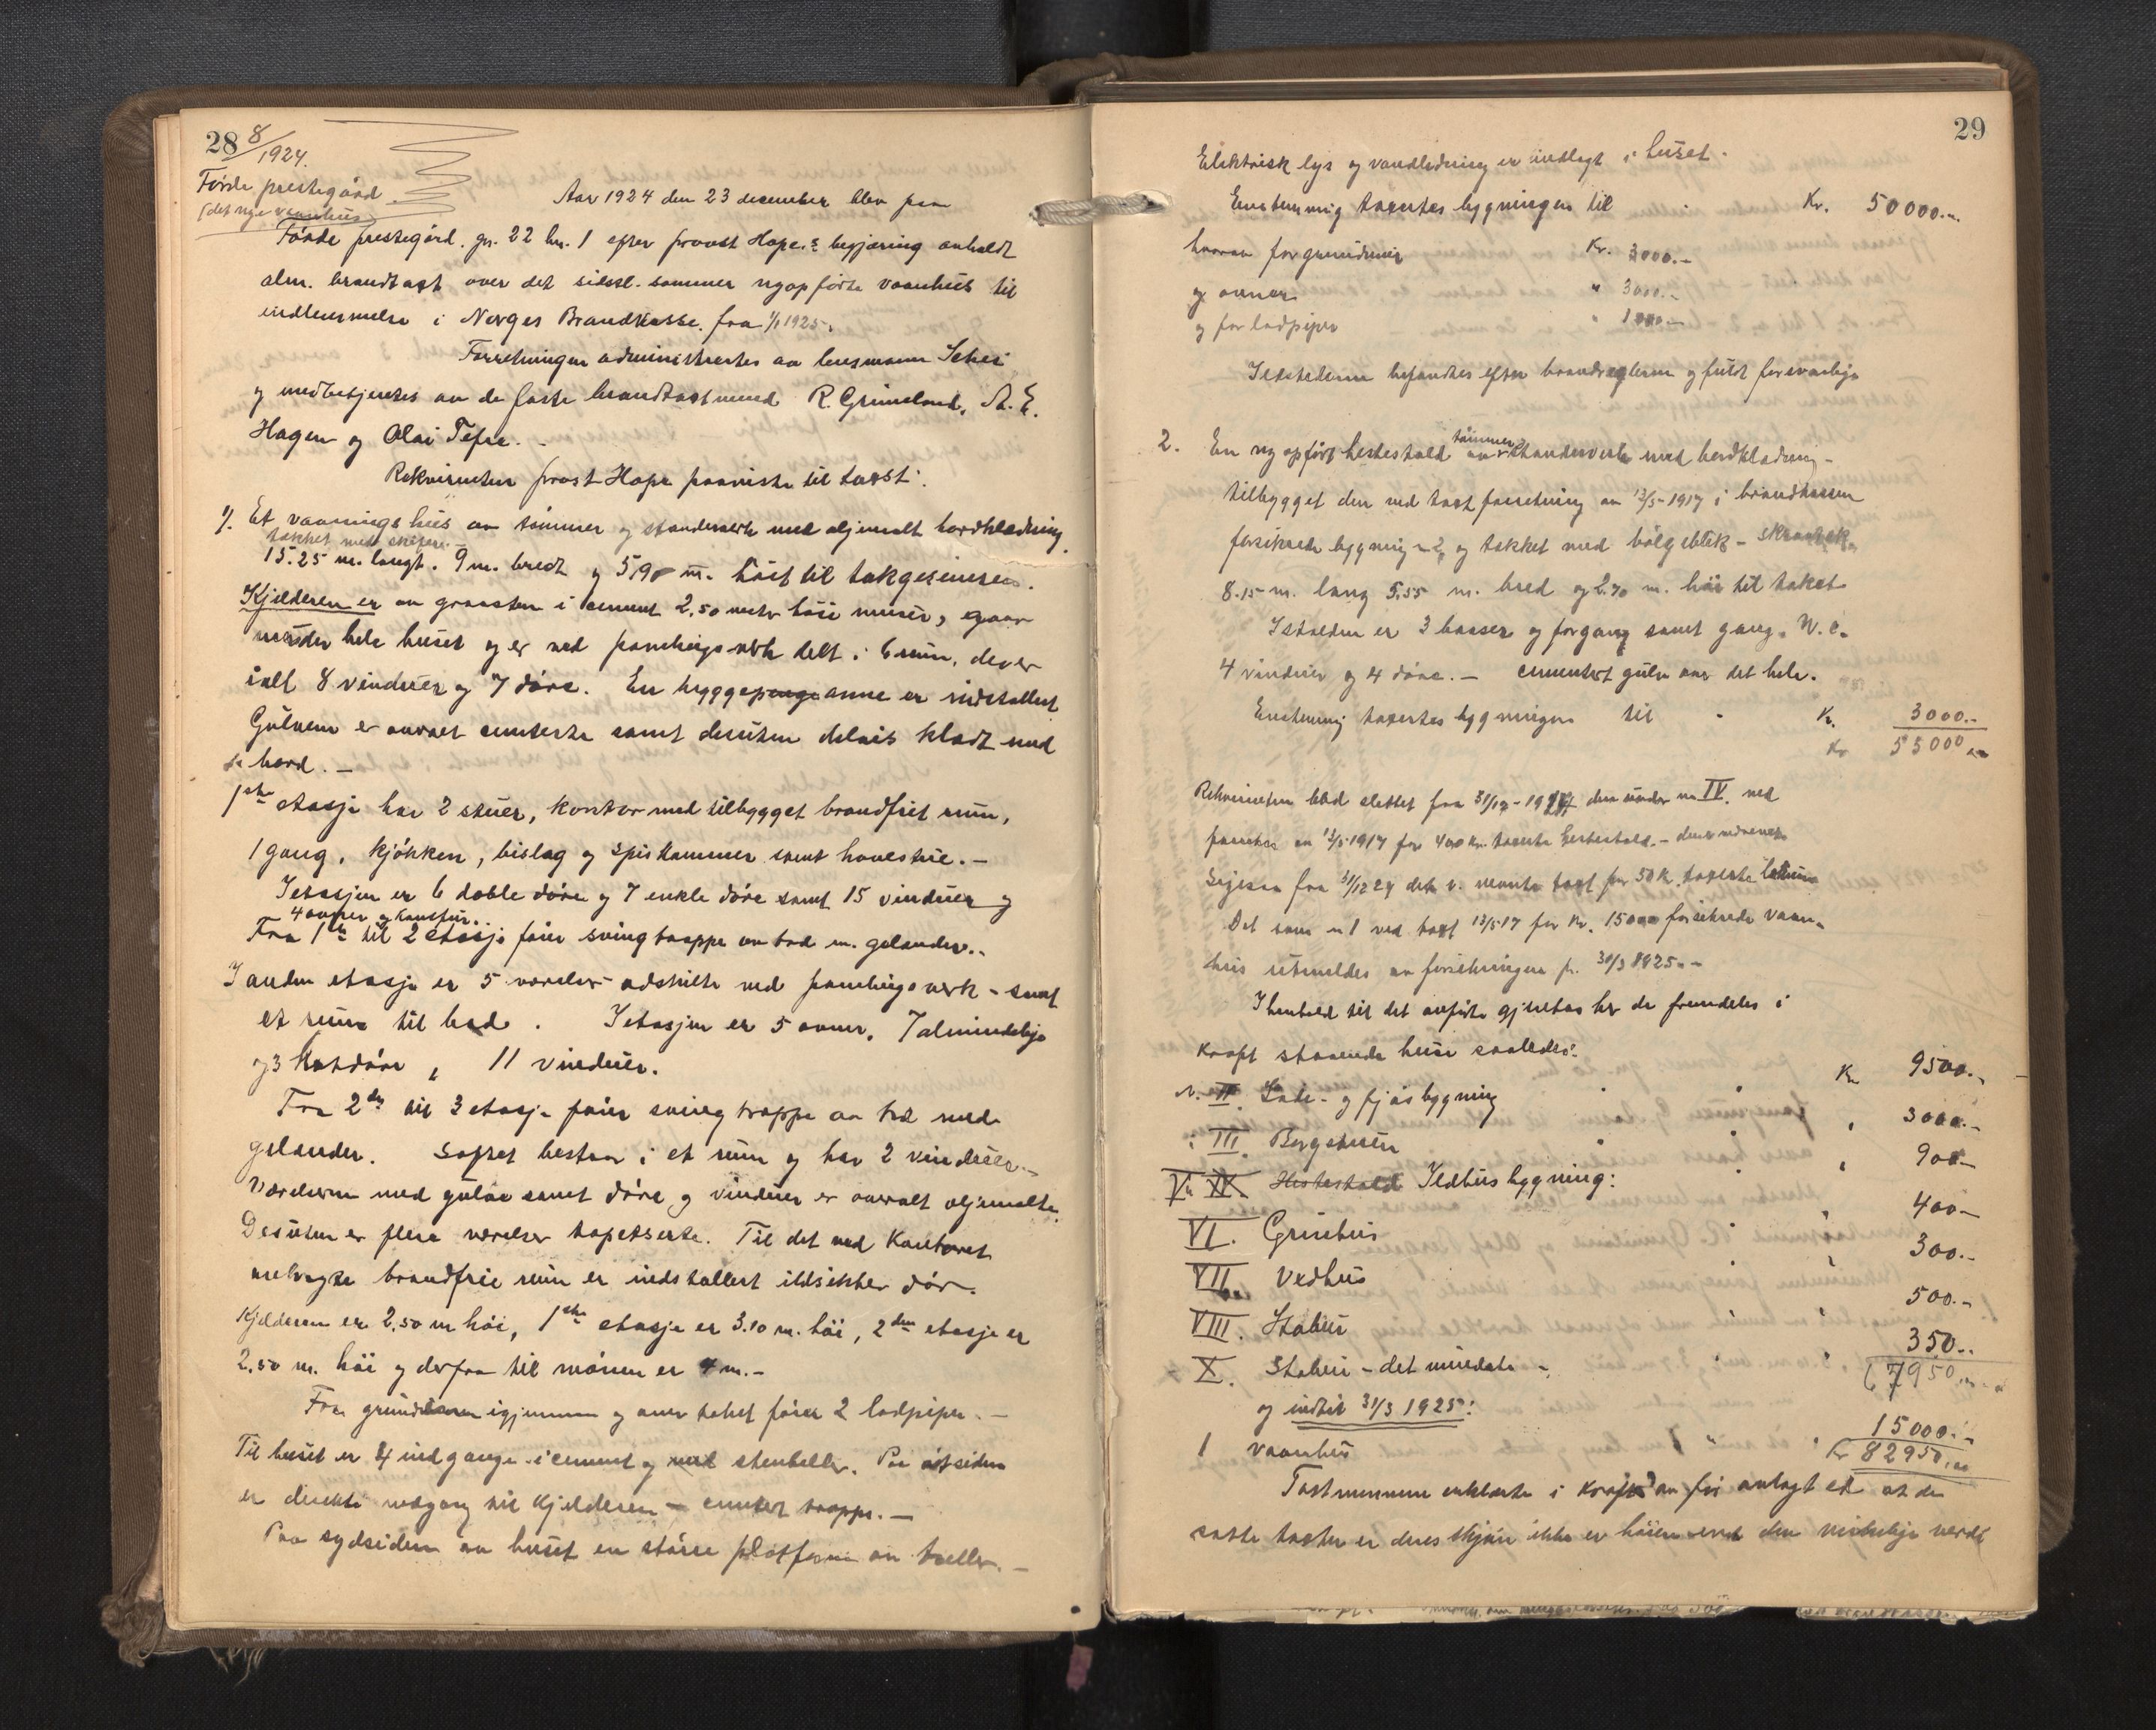 28 8/1924.
Förde prestegård.
(det nye vaanhus)
Aar 1924 den 23 december blev paa
Förde prestegård. gr. 22 br. 1 efter provst Hope.s begjæring avholdt
alm. brandtaxt over det sidstl. sommer nyopførte vaanhus til
indlemmelse i Norges Brandkasse. fra 1/1 1925.
Forretningen administrertes av lensmann Schei
og medbetjentes av de faste brandtaxtmænd R. Grimeland, A. E.
Hagen og Olai Tefre. -
Rekvirenten provst Hope paaviste til taxst:
1/. Et vaaningshus av tömmer og standerverk med oljemalt bordklædning
takket med skifer. -
15.25 m. langt. 9 m. bredt og 5,90 m. høit til takgesimsen.
Kjelderen er av graasten i cement 2,50 meter høie murer, gaar
under hele huset og er ved panelingsverk delt i 6 rum, der er
ialt 8 vinduer og 7 døre. En bryggepange ovne er indstallert
Gulvene er overalt cementerte samt desuten delvis klædt med
bord. -
1ste etasje har 2 stuer, kontor med tilbygget brandfrit rum,
1 gang, kjøkken, bislag og spiskammer samt havestue. -
I etasjen er 6 doble döre og 7 enkle döre samt 15 vinduer og
4 ovner og komfur.
Fra 1ste til 2 etasje fører svingtrappe av træ m. gelænder. -
I anden etasje er 5 værelser adskilte ved panelingsverk - samt
et rum til bad. I etasjen er 5 ovner, 7 almindelige
og 3 kotdöre, 11 vinduer.
Fra 2den til 3 etasje fører svingtrappe av træ med
gelænder. Loftet bestaar i et rum og har 2 vinduer. -
Værelserne med gulve samt döre og vinduer er overalt oljemalte.
Desuten er flere værelser tapetserte. Til det ved Kontoret
ombygte brandfrie rum er indstallert ildsikker dör.
Kjelderen er 2,50 m høi, 1ste etasje er 3.10 m. høi, 2den etasje er
2.50 m. høi og derfra til mönen er 4 m. -
Fra grunden igjennem og over taket fører 2 ladpiper. -
Til huset er 4 indgange i cement og med stenheller. Paa østsiden
er direkte nedgang til kjelderen - cement trappe. -
Paa sydsiden av huset en större platform av træller. -
29
Elektrisk lys og vandledning er indlagt i huset.
Enstemmig taxertes bygningen til Kr. 50000.-
hvorav for grundmur Kr. 3000.-
og ovner " 3000.-
og for ladpiper " 1000.-
Ildstederne befandtes efter brandreglerne og fuldt forsvarlige
2. En ny opført hestestald av tömmer standerverk med bordklædning -
tilbygget den ved taxt forretning av 12/5-1917 i brandkassen
forsikrede bygning n 2 og takket med bölgeblik -
8.15 m. lang 5.55 m. bred og 2.70 m. høi til taket
I stalden er 3 baaser og forgang samt gang, W. C.
4 vinduer og 4 döre. - cementert gulv over det hele.
Enstemmig taxertes bygningen til - Kr. 3000.-
Kr 53000.-
Rekvirenten blad slettet fra 31/12-1924 den under no IV. ved
forretn. av 12/5-1917 for 400 Kr. taxerte hestestald. -
fra 31/12 24 det v. nevnte taxt for 50 Kr. taxerte
Det som n 1 ved taxt 12/5-17 for Kr. 15000 forsikrede vaan-
hus utmeldes av forsikringen pr. 31/3 1925. -
I henhold til det anførte gjentas her de fremdeles i
kraft staaende huse saaledes:
N. II. Lade- og fjøsbygning Kr 9500.-
" III. Borgestuen " 3000.-
V. IV. Hestestald Ildhusbygning: " 900-
VI. Grisehus " 400-
VII. Vedhus " 300.-
VIII. Stabur " 500.-
X. Stabur - det mindste - 350..
67950,-
og indtil 31/3 1925:
1 vaanhus " 15000.-
Kr 82950,00
Taxtmennene erklærte i kraft av før avlagt ed at de
satte taxter er deres skjøn ikke er høiere end den virkelige værdi